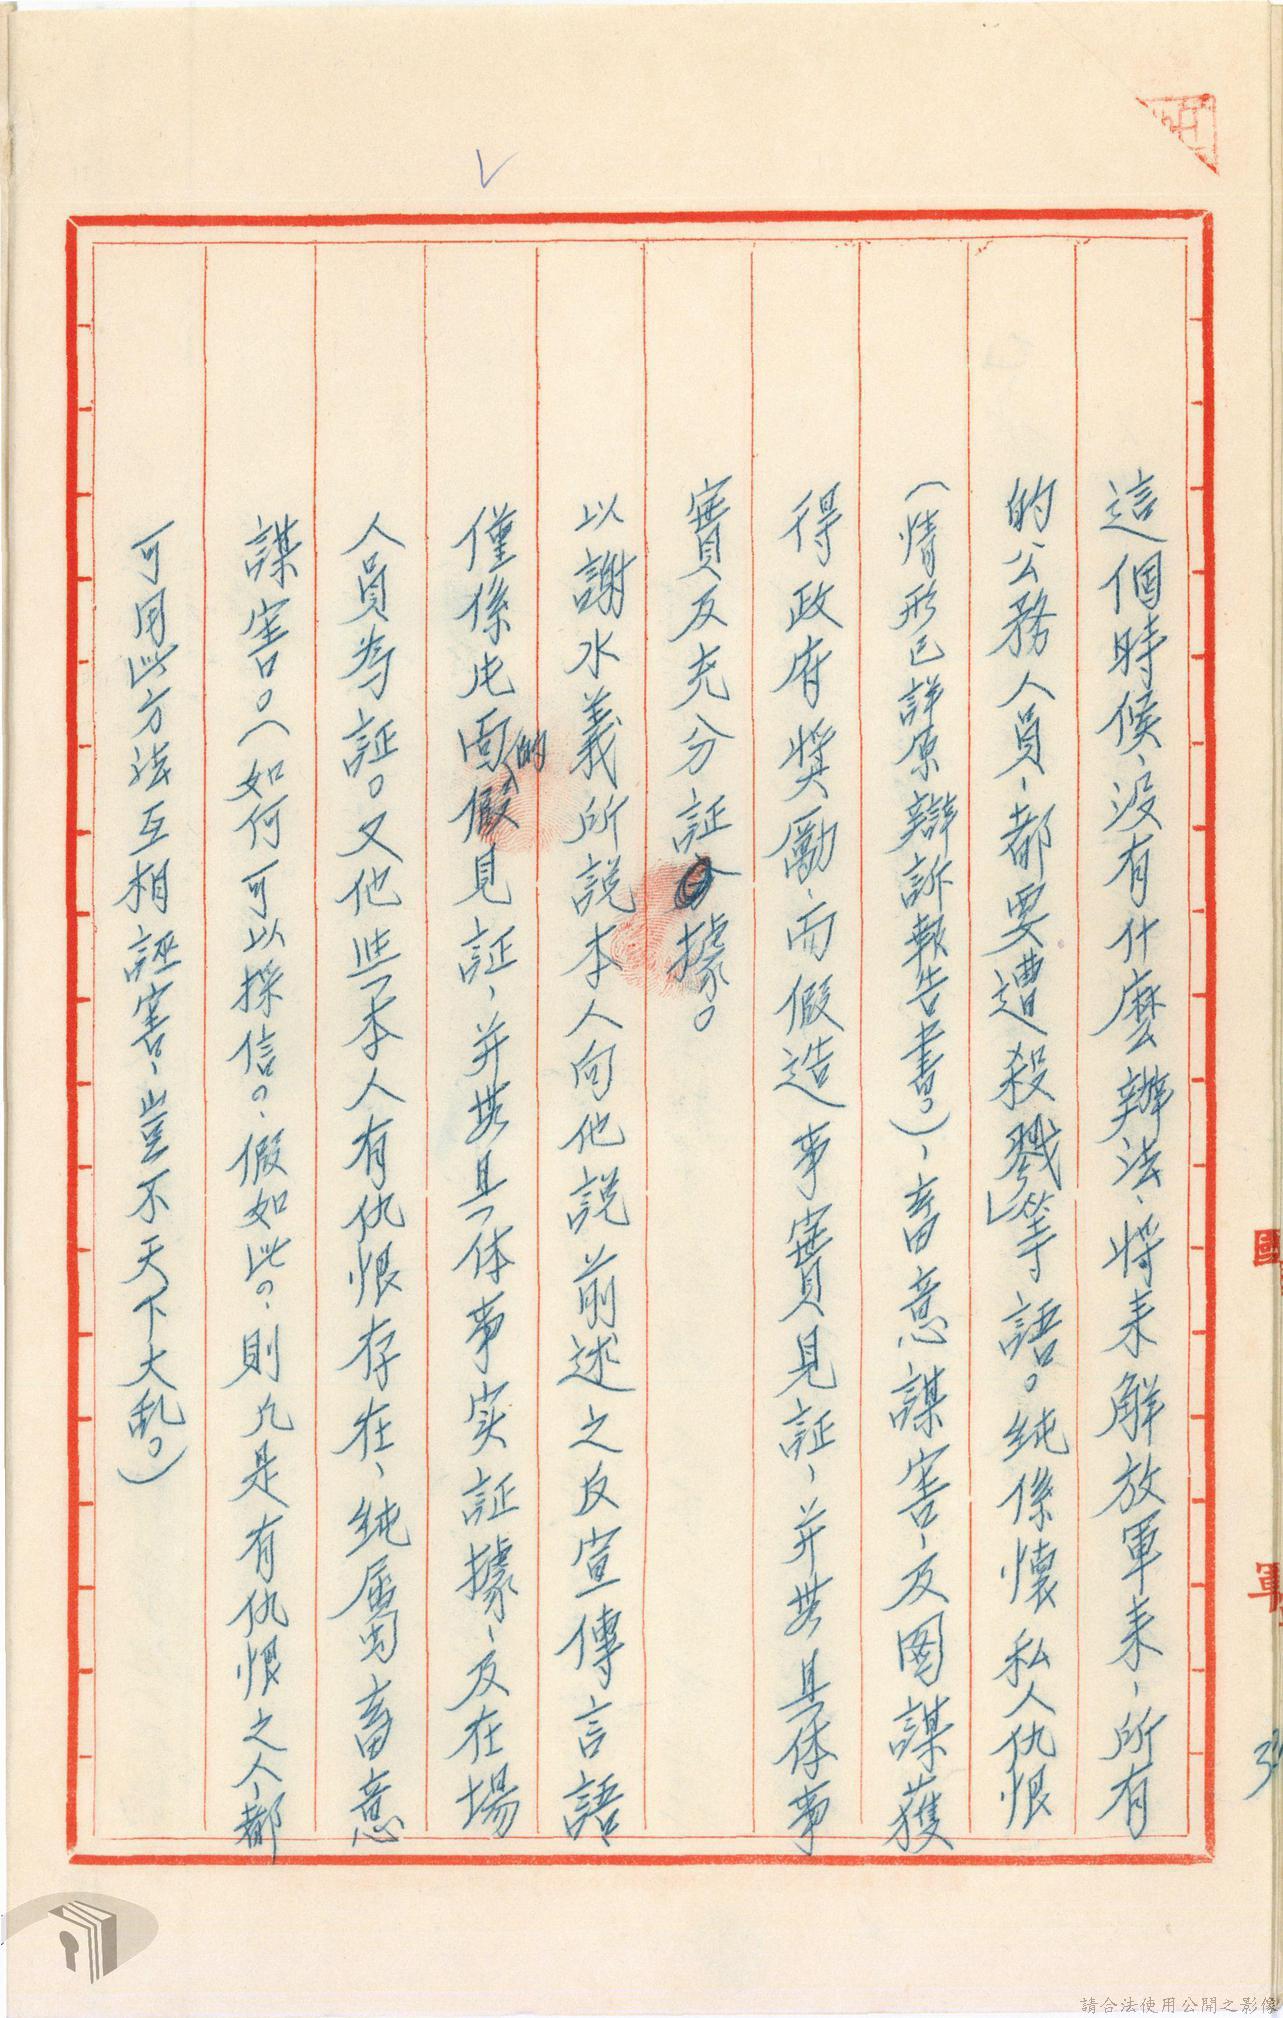 這個時候、沒有什麼辦法、將来解放軍来、所有
的公務人員、都要遭殺戮」等語。純係懷私人仇恨
（情形已詳原辯訴報告書。）、畜意謀害、及图謀獲
得政府奬勵、而假造事實見証、并無具体事
實及充分証據。
以謝水義所説本人向他説前述之反宣傳言語
僅係片面的假見証、并無具体事实証據、及在場
人員為証。又他些本人有仇恨存在、純屬畜意
謀害。（如何可以採信。、假如此。、則凡是有仇恨之人、都
可用此方法互相誣害、豈不天下大乱。）
國
軍
請合法使用公開之影像